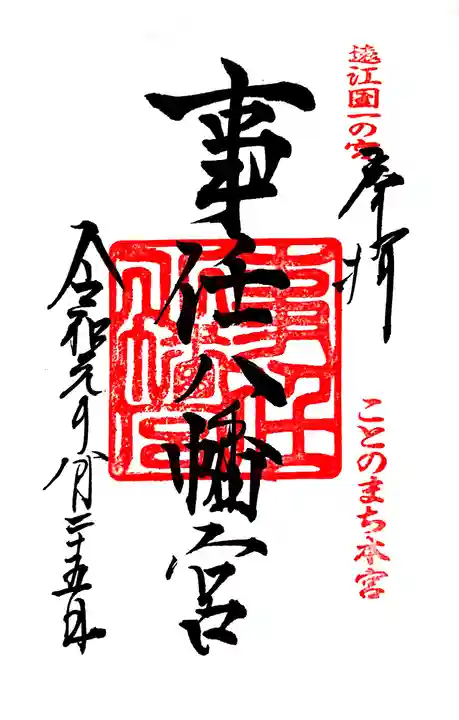 遠江国一の宮
奉拝
ことのまち本宮
事任八幡宮
令和元年八月二十五日